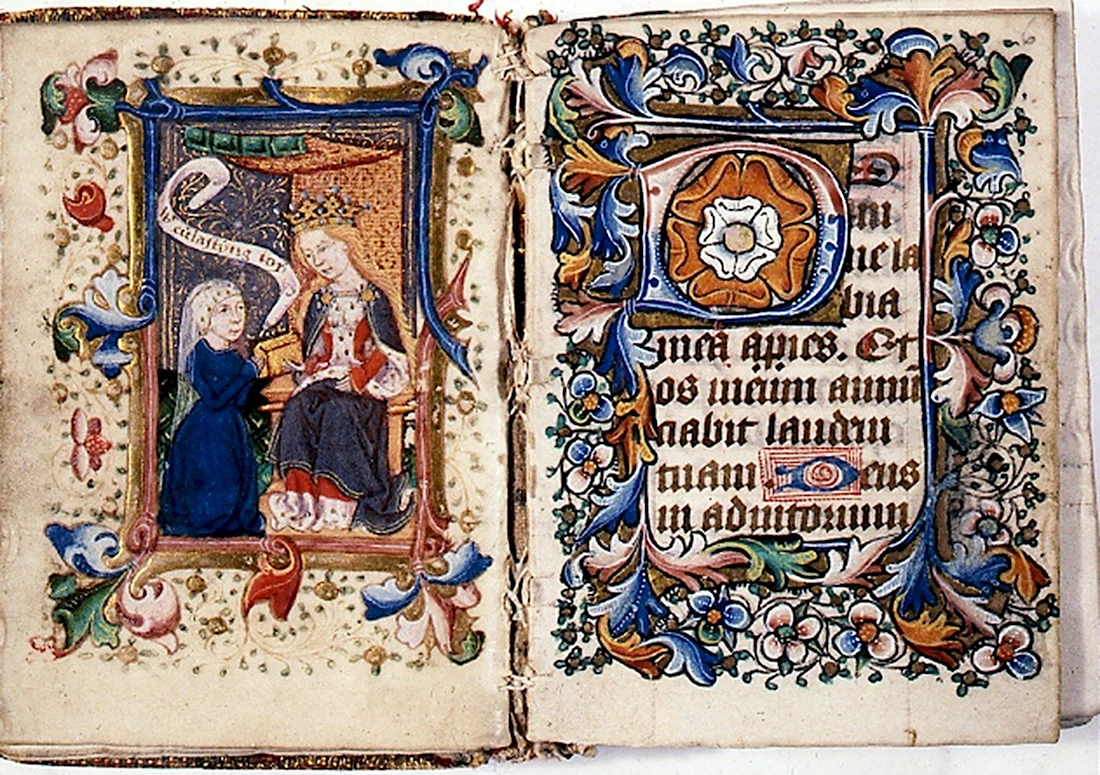 eulastyng ioy
D
mi
ne la
bia
mea apies. Et
os meum annū
ciabit laudem
tuam Deus
in adiutorium